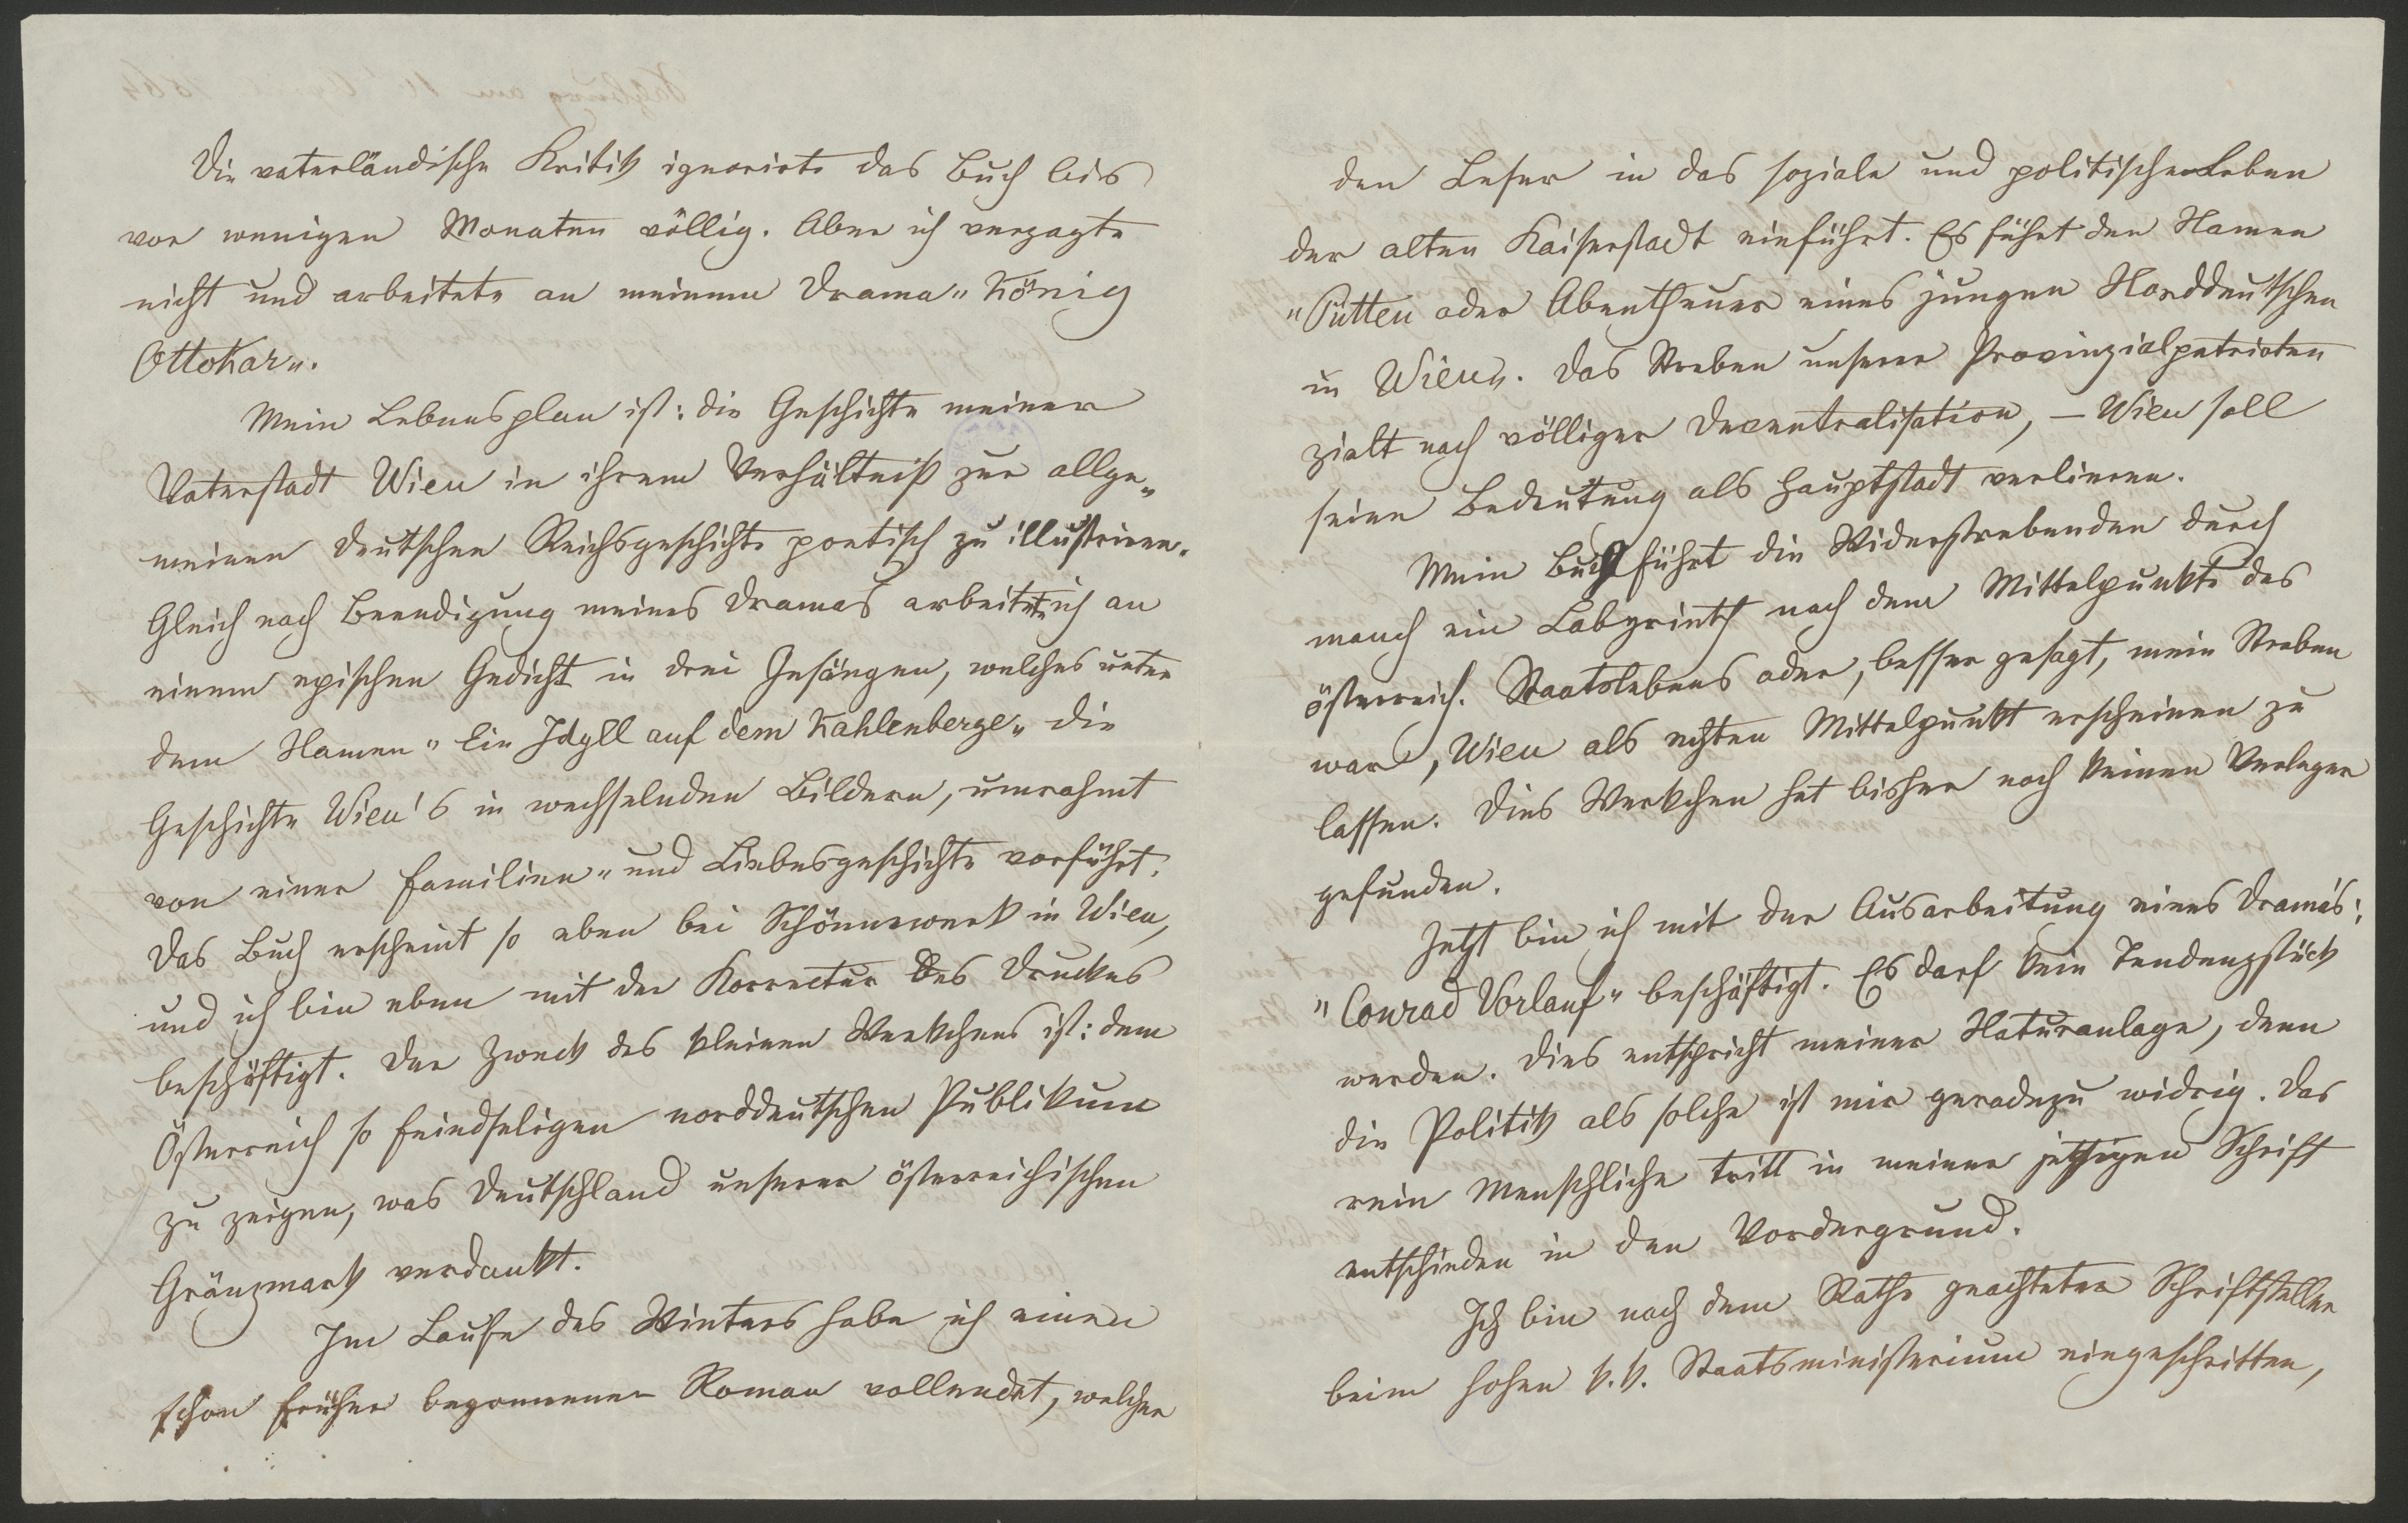 Die vaterländische Kritik ignorirte das Buch bis
vor wenigen Monaten völlig. Aber ich verzagte
nicht und arbeitete an meinem Drama „König
Ottokar„.
Mein Lebensplan ist: die Geschichte meiner
Vaterstadt Wien in ihrem Verhältniß zur allge-
meinen deutschen Reichsgeschichte poetisch zu illustriren.
Gleich nach Beendigung meines Dramas arbeitete ich an
einem epischen Gedicht in drei Gesängen, welches unter
dem Namen „Ein Idyll auf dem Kahlenberge„ die
Geschichte Wien's in wechselnden Bildern, umrahmt
von einer Familien- und Liebesgeschichte vorführt.
Das Buch erscheint so eben bei Schönewerk in Wien,
und ich bin eben mit der Korrectur des Druckes
beschäftigt. Der Zweck des kleinen Werkchens ist: dem
Österreich so feindseligen norddeutschen Publikum
zu zeigen, was Deutschland unserer österreichischen
Gränzmark verdankt.
Im Laufe des Winters habe ich einen
schon früher begonnenen Roman vollendet, welcher
den Leser in das soziale und politische Leben
der alten Kaiserstadt einführt. Es führt den Namen
„Pütten oder Abentheuer eines jungen Norddeutschen
in Wien„. Das Streben unserer Provinzialpatrioten
zielt nach völliger Decentralisation, – Wien soll
seine Bedeutung als Hauptstadt verlieren.
Mein Buch führt die Widerstrebenden durch
manch ein Labyrinth nach dem Mittelpunkte des
österreich. Staatslebens oder, besser gesagt, mein Streben
war, Wien als echten Mittelpunkt erscheinen zu
lassen. Dies Werkchen hat bisher noch keinen Verleger
gefunden.
Jetzt bin ich mit der Ausarbeitung eines Drama's:
„Conrad Vorlauf„ beschäftigt. Es darf kein Tendenzstück
werden. Dies entspricht meiner Naturanlage, denn
die Politik als solche ist mir geradezu widrig. Das
rein Menschliche tritt in meiner jetzigen Schrift
entschieden in den Vordergrund.
Ich bin nach dem Rathe geachteter Schriftsteller
beim hohen k. k. Staatsministerium eingeschritten,